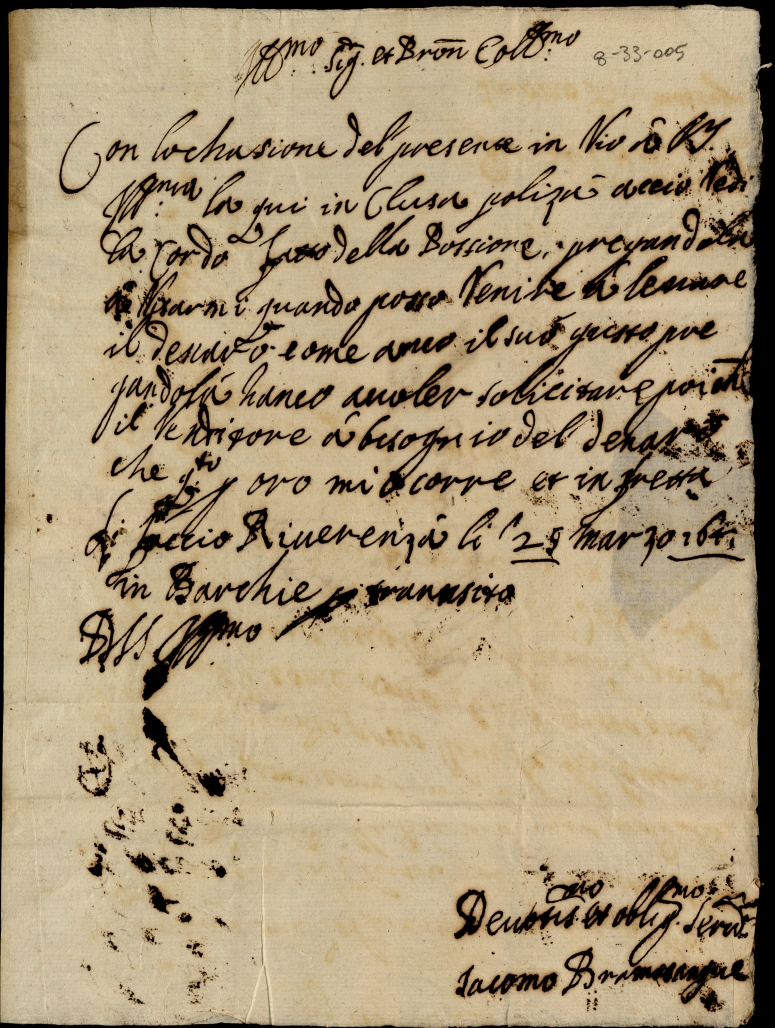 Ill:mo Sig.r et Pron Coll:mo
8-33-005
Con lochasione del presente in Vio à VS.
Ill:ma la qui in Clusa poliza accio Vedi
la Cordo fatto della Possione, pregandola
avisarmi quando posso Venire à levare
il denaro come anco il suo gusto pre
gandola hanco avoler solicitare poi che
il Venditore à bisognio del denaro
che q.to p oro mi ocorre et in fretta
li faccio Riverenza li 25 Marzo
in Barchie p transito
D VS Ill:mo
Devotis.mo et oblig.mo Serv.
Iacomo